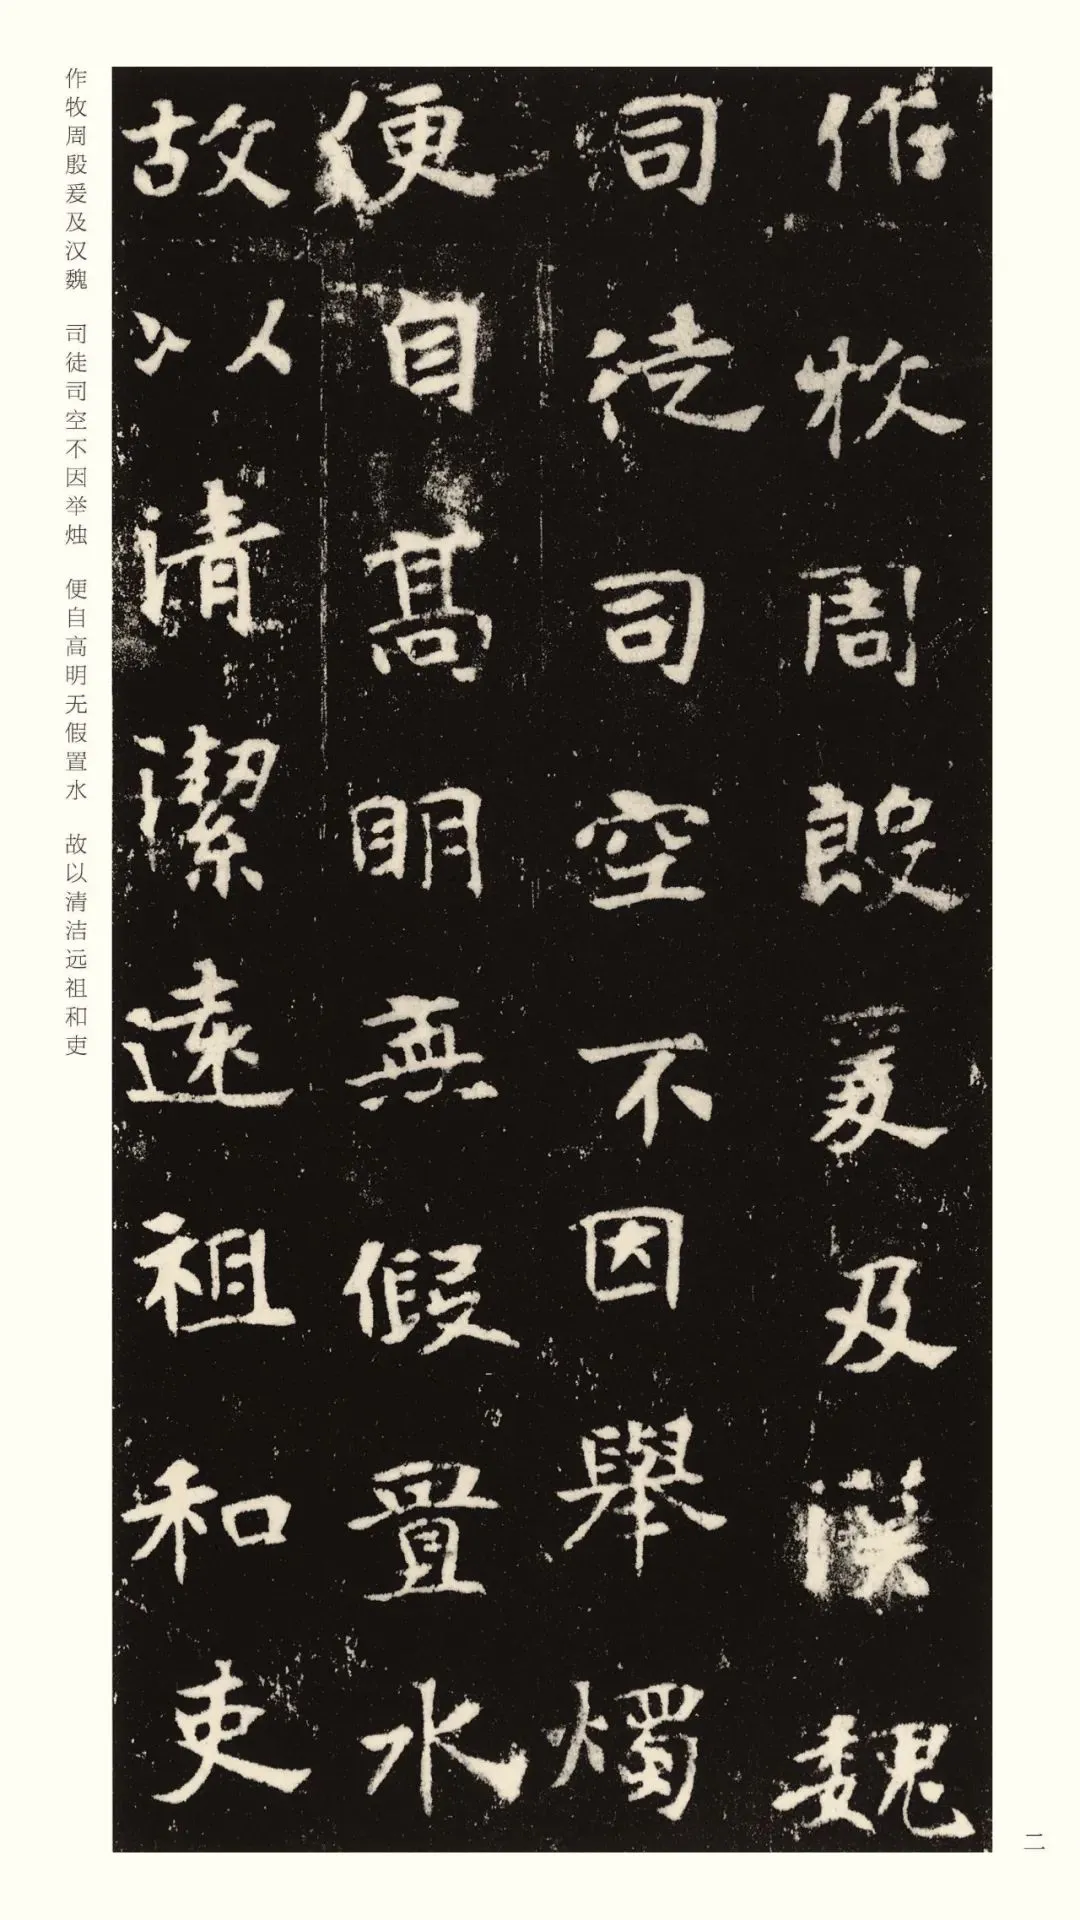 作牧周殷爰及漢魏
司徒司空不因舉燭
便自高明無假置水
故以清潔遠祖和吏
作牧周殷爰及汉魏　司徒司空不因举烛　便自高明无假置水　故以清洁远祖和吏
二